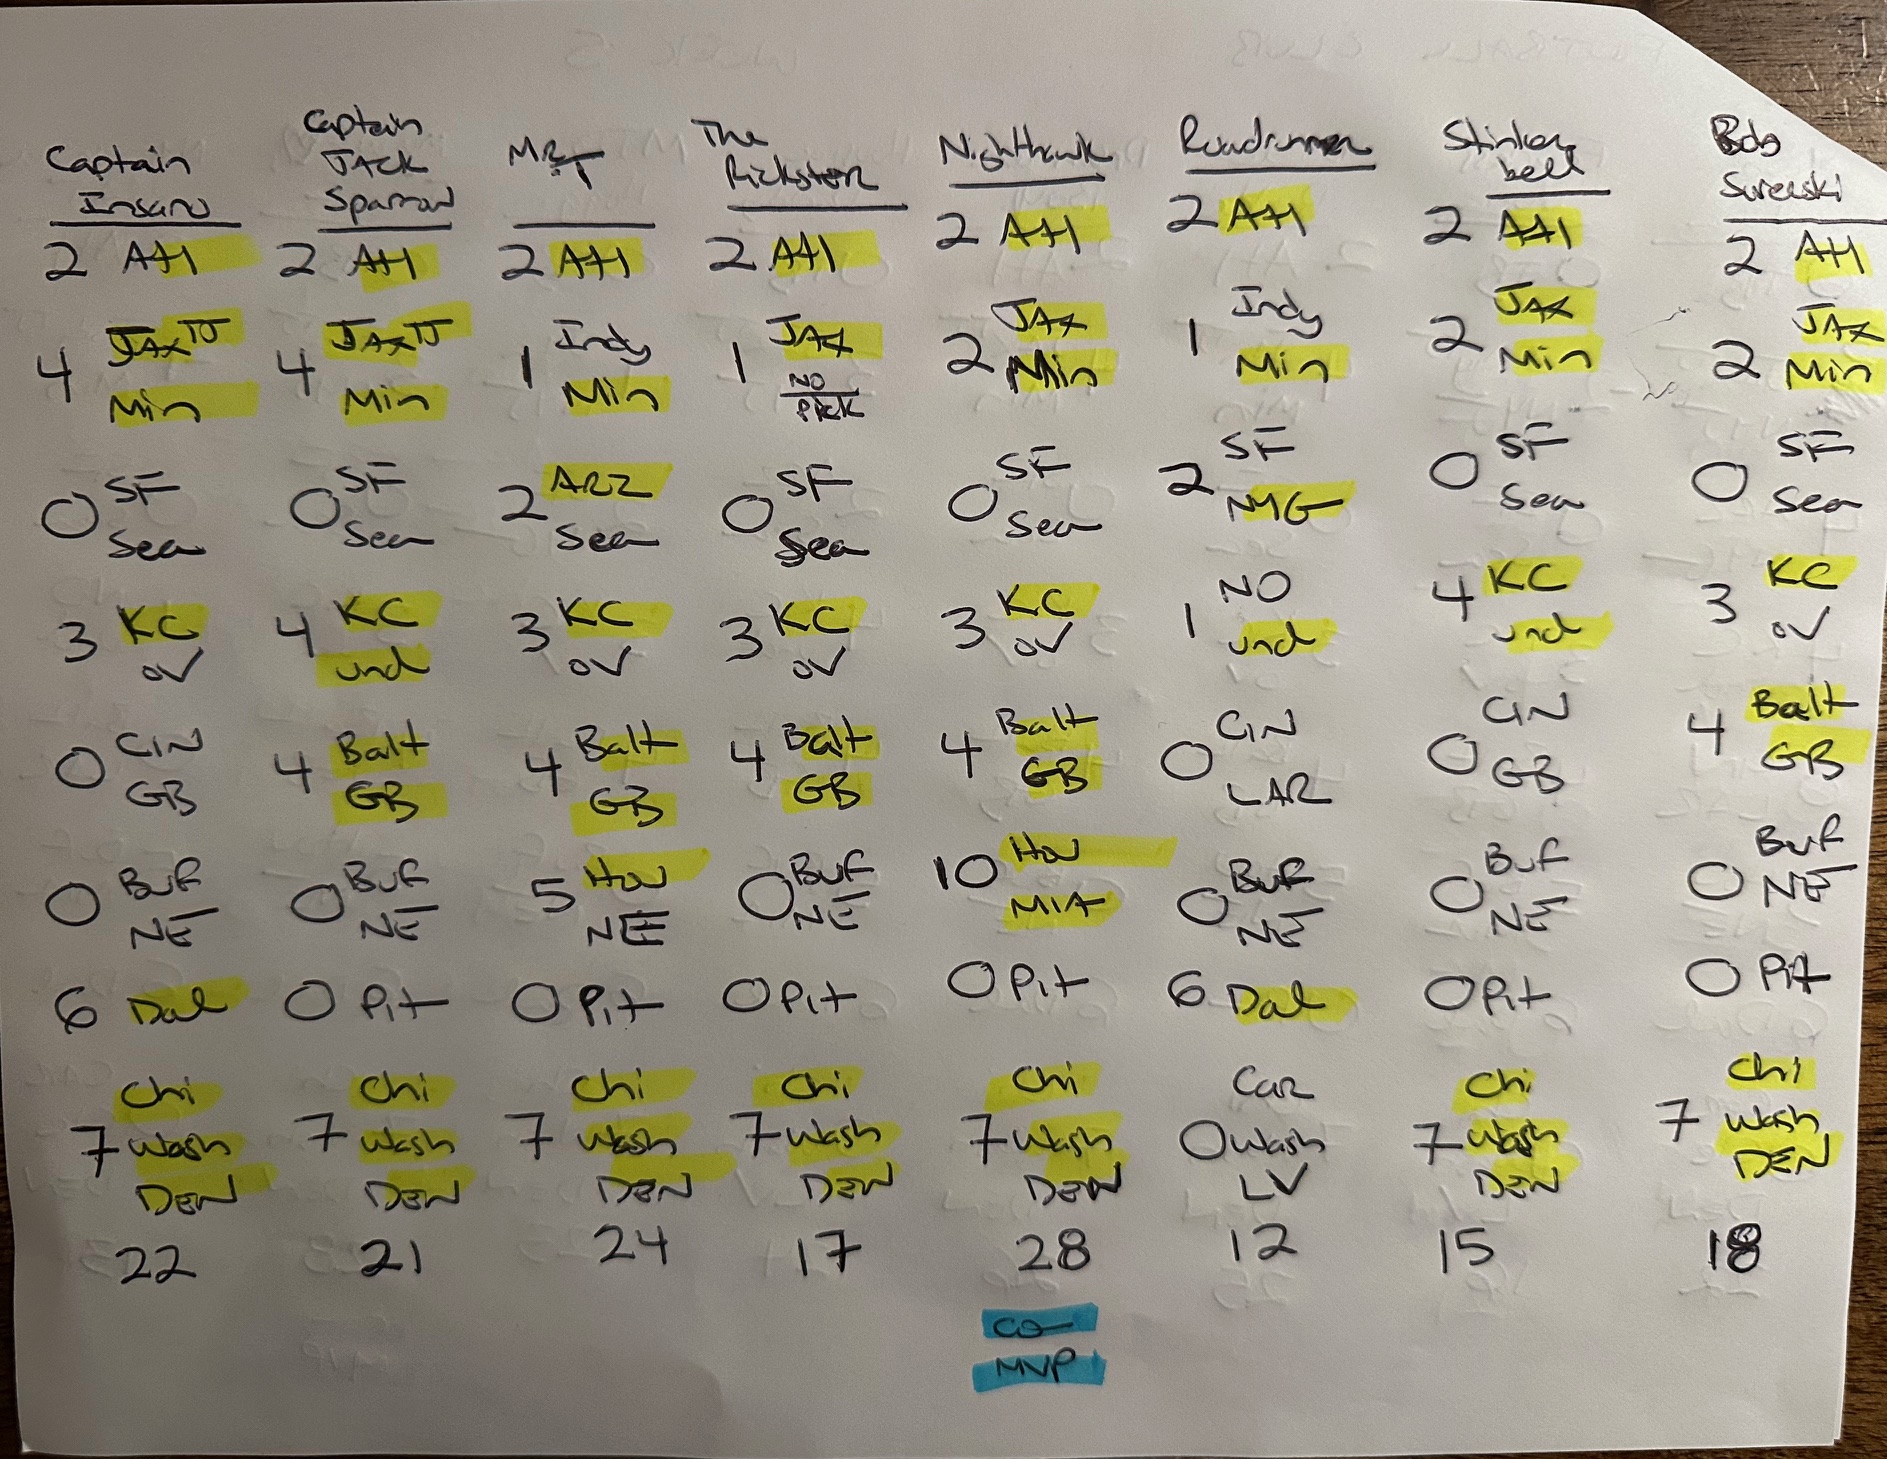 Captain
Insano
2 Atl
4 JAX TJ
Min
0 SF
Sea
3 KC
OV
0 CIN
GB
0 BUF
NE
6 Dal
Chi
7 Wash
DEN
22
Captain
JACK
Sparrow
2 Atl
4 JAX TJ
Min
0 SF
Sea
4 KC
und
4 Balt
GB
0 BUF
NE
0 Pit
Chi
7 Wash
DEN
21
MR T
2 Atl
1 Indy
Min
2 ARZ
Sea
3 KC
OV
4 Balt
GB
5 HOU
NE
0 Pit
Chi
7 Wash
DEN
24
The
Rickster
2 Atl
1 JAX
NO
PICK
0 SF
Sea
3 KC
OV
4 Balt
GB
0 BUF
NE
0 Pit
Chi
7 Wash
DEN
17
Nighthawk
2 Atl
2 JAX
Min
0 SF
Sea
3 KC
OV
4 Balt
GB
10 HOU
MIA
0 Pit
Chi
7 Wash
DEN
28
CO
MVP
Roadrunner
2 Atl
1 Indy
Min
2 SF
NYG
1 NO
und
0 CIN
LAR
0 BUF
NE
6 Dal
Car
0 Wash
LV
12
Stinker
bell
2 Atl
2 JAX
Min
0 SF
Sea
4 KC
und
0 CIN
GB
0 BUF
NE
0 Pit
Chi
7 Wash
DEN
15
Bob
2 Atl
2 JAX
Min
0 SF
Sea
3 KC
OV
4 Balt
GB
0 BUF
NE
0 Pit
Chi
7 Wash
DEN
18